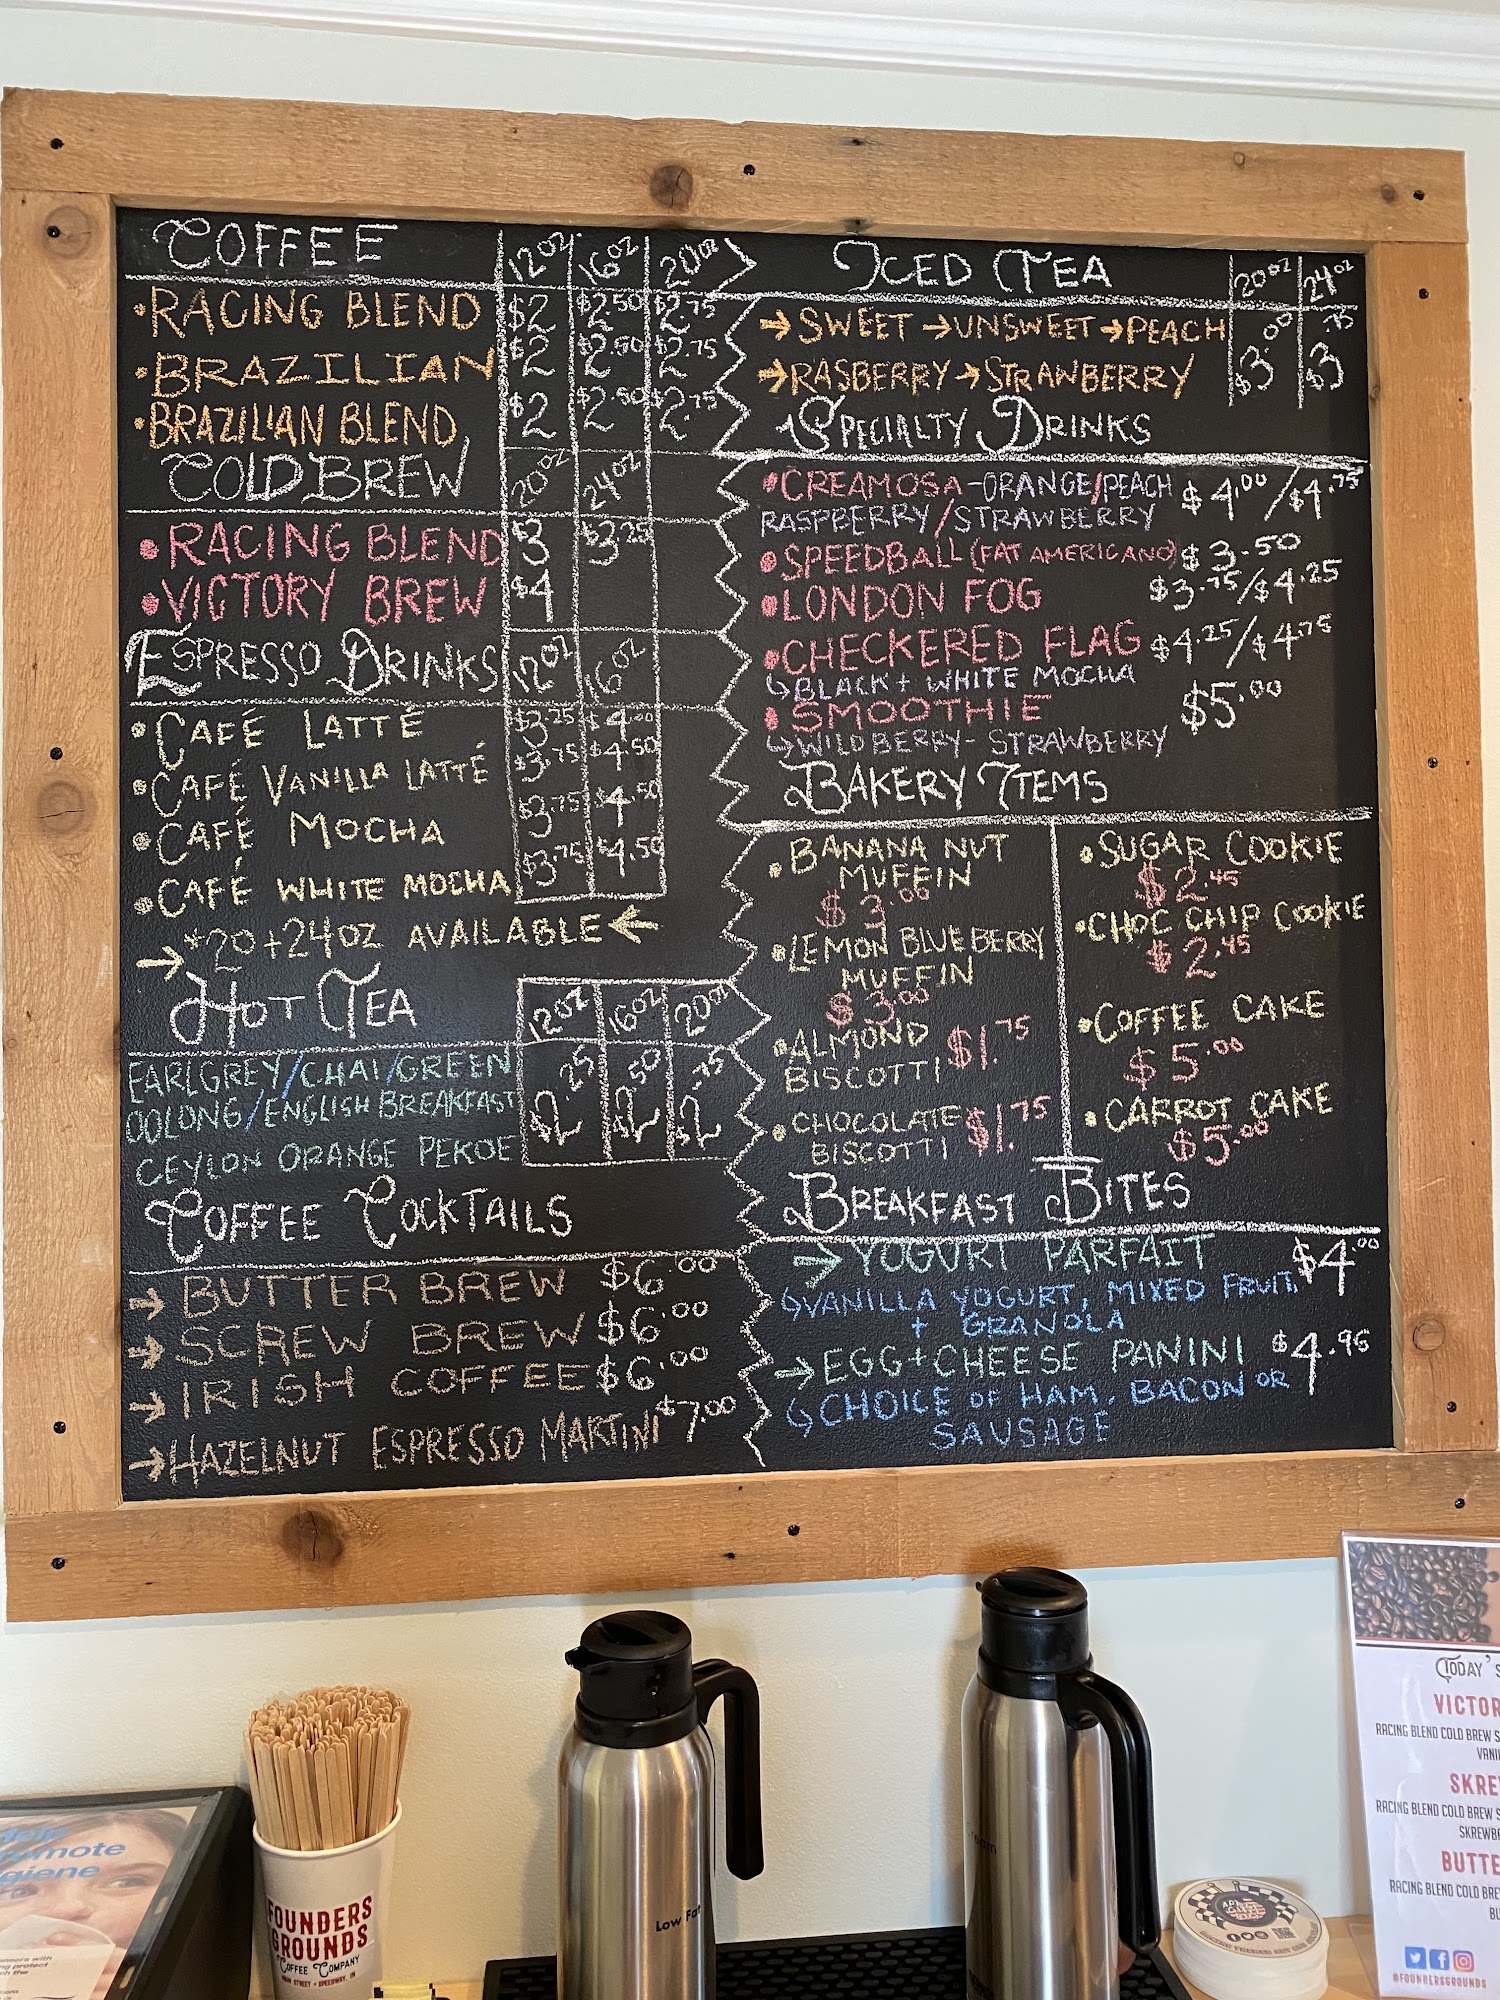 COFFEE 12oz 16oz 20oz
• RACING BLEND $2 $2.50 $2.75
• BRAZILIAN $2 $2.50 $2.75
• BRAZILIAN BLEND $2 $2.50 $2.75
COLD BREW 20oz 24oz
• RACING BLEND $3 $3.25
• VICTORY BREW $4
ESPRESSO DRINKS 12oz 16oz
• CAFÉ LATTÉ $3.25 $4.00
• CAFÉ VANILLA LATTÉ $3.75 $4.50
• CAFÉ MOCHA $3.75 $4.50
• CAFÉ WHITE MOCHA $3.75 $4.50
→ *20+24OZ AVAILABLE ←
HOT TEA 12oz 16oz 20oz
EARLGREY/CHAI/GREEN $2.25 $2.50 $2.75
OOLONG/ENGLISH BREAKFAST
CEYLON ORANGE PEKOE
COFFEE COCKTAILS
→ BUTTER BREW $6.00
→ SCREW BREW $6.00
→ IRISH COFFEE $6.00
→ HAZELNUT ESPRESSO MARTINI $7.00
ICED TEA 20oz 24oz
→ SWEET → UNSWEET → PEACH $3.00 $3.75
→ RASBERRY → STRAWBERRY
SPECIALTY DRINKS
• CREAMOSA - ORANGE/PEACH $4.00/$4.75
RASPBERRY/STRAWBERRY
• SPEEDBALL (FAT AMERICANO) $3.50
• LONDON FOG $3.75/$4.25
• CHECKERED FLAG $4.25/$4.75
↳ BLACK + WHITE MOCHA
• SMOOTHIE $5.00
↳ WILDBERRY - STRAWBERRY
BAKERY ITEMS
• BANANA NUT
MUFFIN
$3.00
• LEMON BLUEBERRY
MUFFIN
$3.00
• ALMOND
BISCOTTI $1.75
• CHOCOLATE
BISCOTTI $1.75
• SUGAR COOKIE
$2.45
• CHOC CHIP COOKIE
$2.45
• COFFEE CAKE
$5.00
• CARROT CAKE
$5.00
BREAKFAST BITES
→ YOGURT PARFAIT $4.00
↳ VANILLA YOGURT, MIXED FRUIT,
+ GRANOLA
→ EGG+CHEESE PANINI $4.95
↳ CHOICE OF HAM, BACON OR
SAUSAGE
FOUNDERS
GROUNDS
COFFEE COMPANY
MAIN STREET • SPEEDWAY, IN
Low Fat
TODAY'S
RACING BLEND COLD BREW
RACING BLEND COLD BREW
RACING BLEND COLD
@FOUNDERSGROUNDS